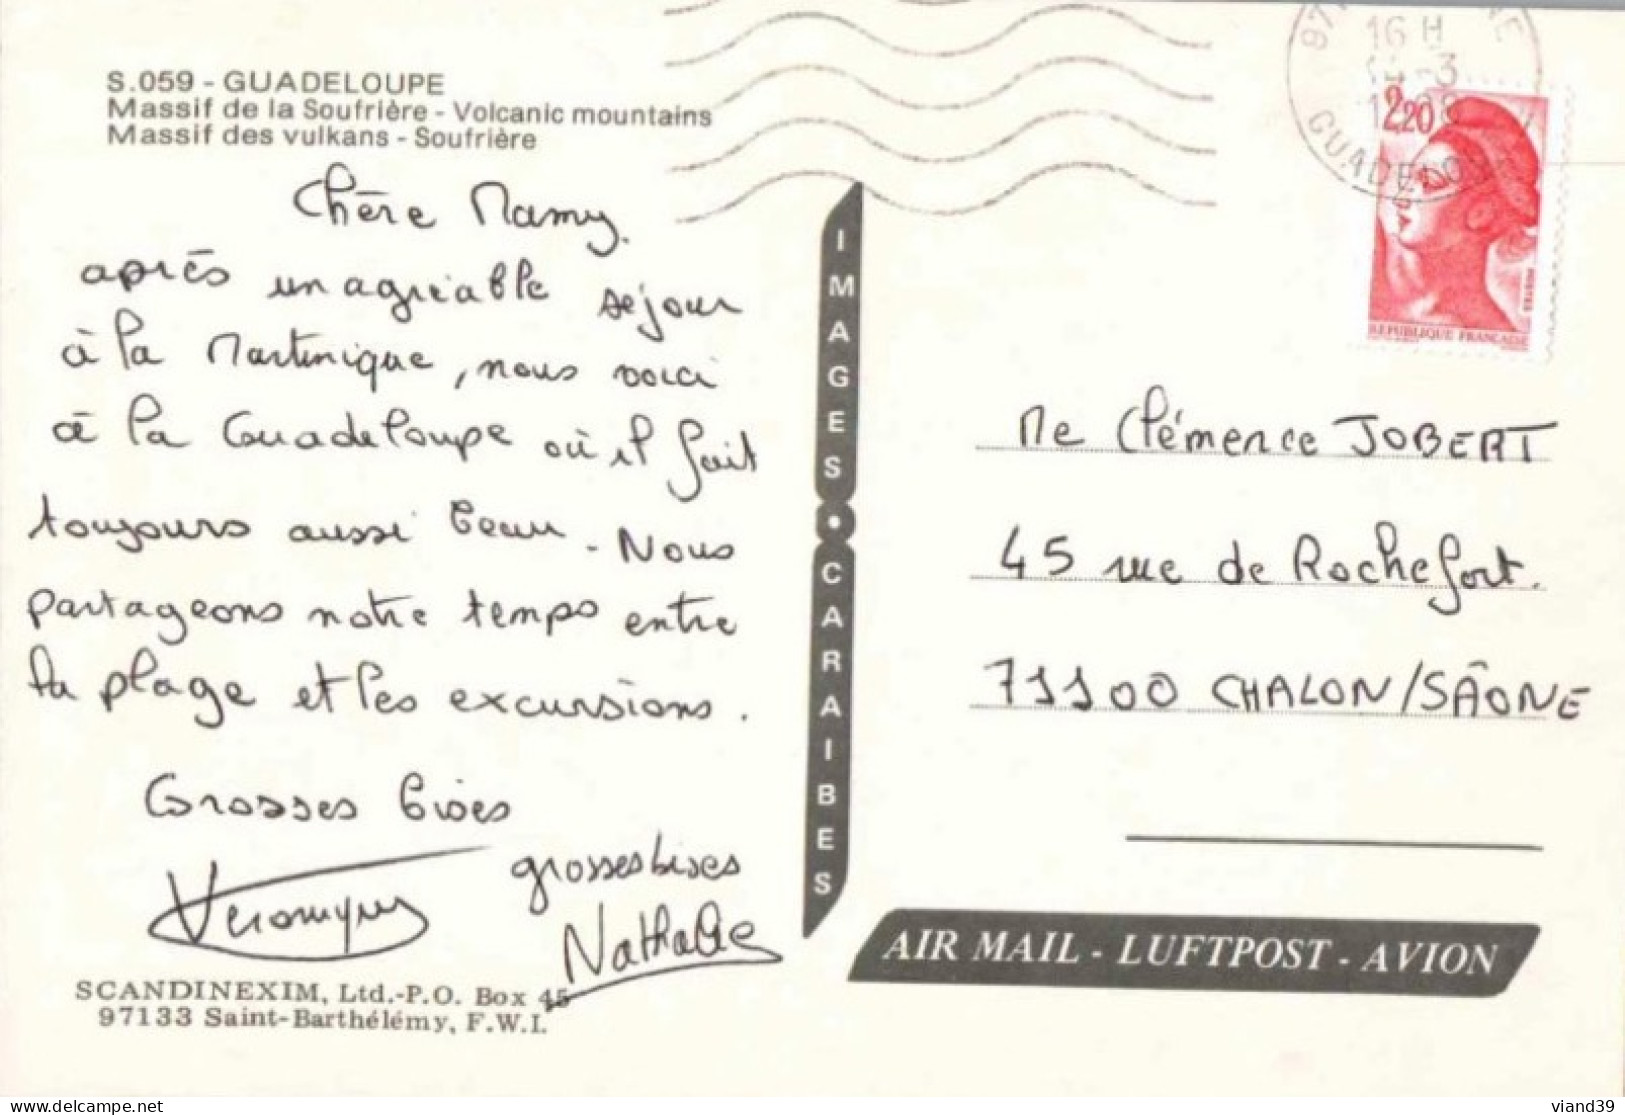 S.059 - GUADELOUPE
Massif de la Soufrière - Volcanic mountains
Massif des vulkans - Soufrière
Chère Mamy.
après un agréable séjour
à la Martinique, nous voici
à la Guadeloupe où il fait
toujours aussi beau. Nous
partageons notre temps entre
la plage et les excursions.
Grosses bises
Véronique
grosses bises
Nathalie
SCANDINEXIM, Ltd.-P.O. Box 45
97133 Saint-Barthélémy, F.W.I.
IMAGES • CARAIBES
16 H
GUADELOUPE
2,20
REPUBLIQUE FRANÇAISE
Me Clémence JOBERT
45 rue de Rochefort.
71100 CHALON/SÂONE
AIR MAIL - LUFTPOST - AVION
delcampe.net
viand39